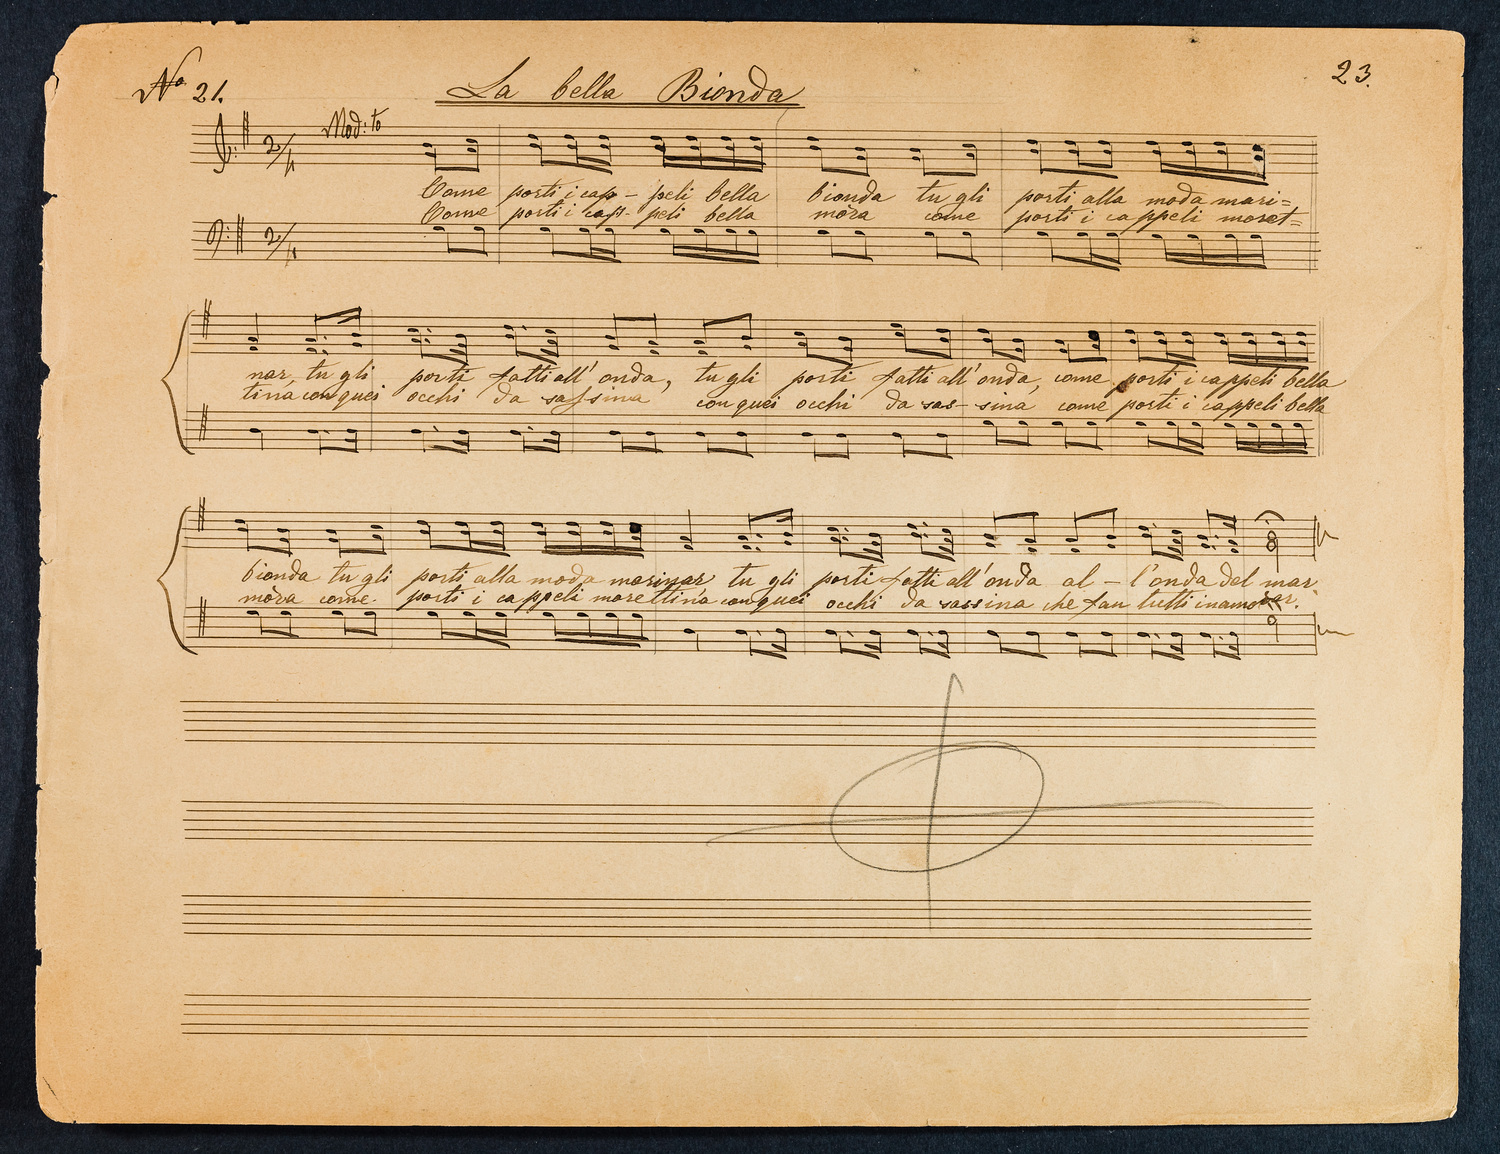 No 21.
La bella Bionda
23.
Mod:to
2/4
Come porti i cap- peli bella bionda tu gli porti alla moda mari=
Come porti i cap- peli bella mora come porti i cappeli moret=
2/4
nar, tu gli porti fatti all' onda, tu gli porti fatti all' onda, come porti i cappeli bella
tina con quei occhi da sassina con quei occhi da sas- sina come porti i cappeli bella
bionda tu gli porti alla moda marinar tu gli porti fatti all' onda al- l'onda del mar
mora come porti i cappeli morettina con quei occhi da sassina che fan tutti inamorar.